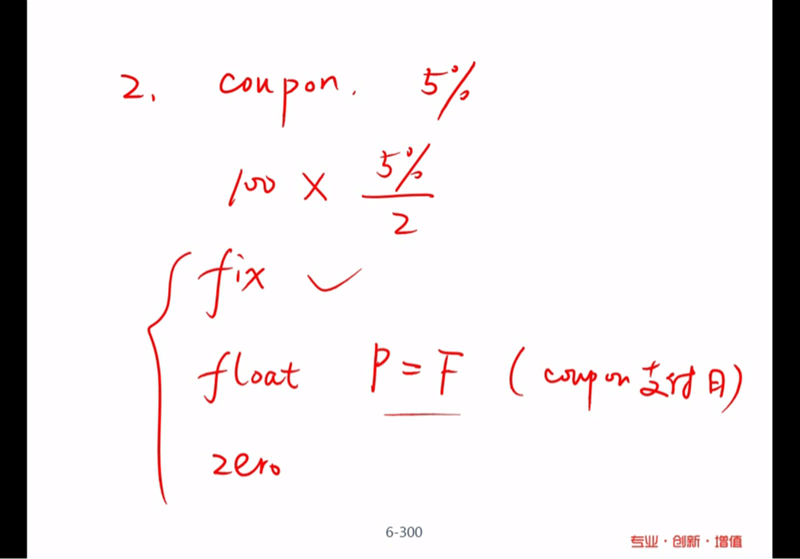 2. coupon. 5%
100 × 5%/2
fix ✓
float P = F (coupon支付日)
zero
6-300
专业·创新·增值